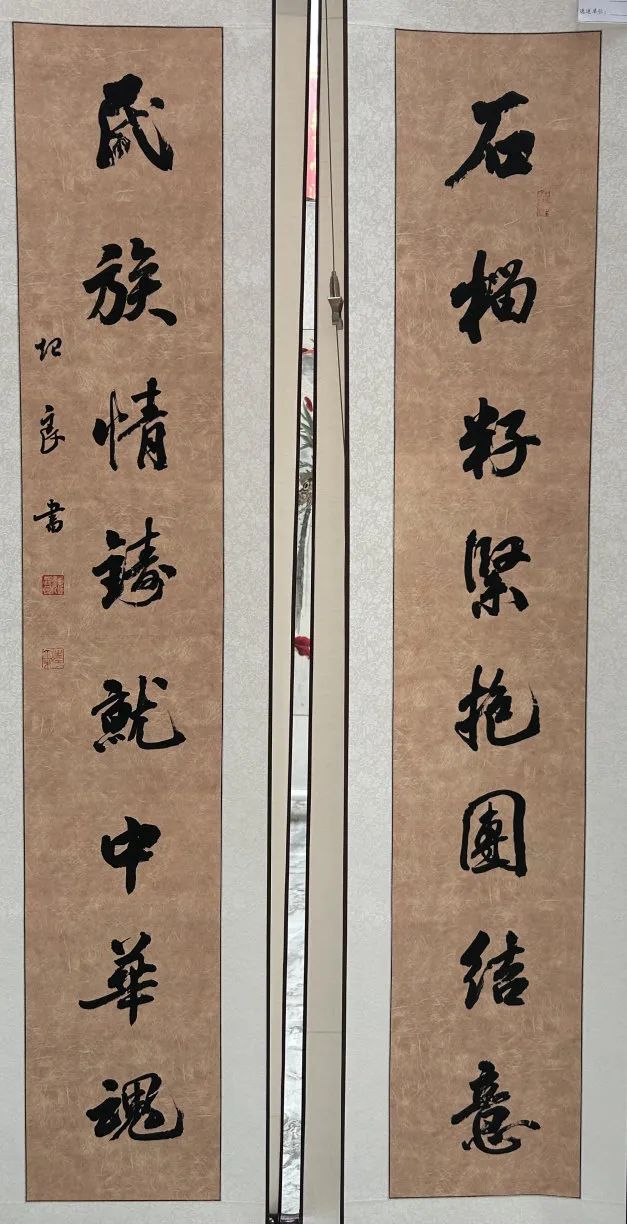 石榴籽緊抱團結意
民族情鑄就中華魂
良書